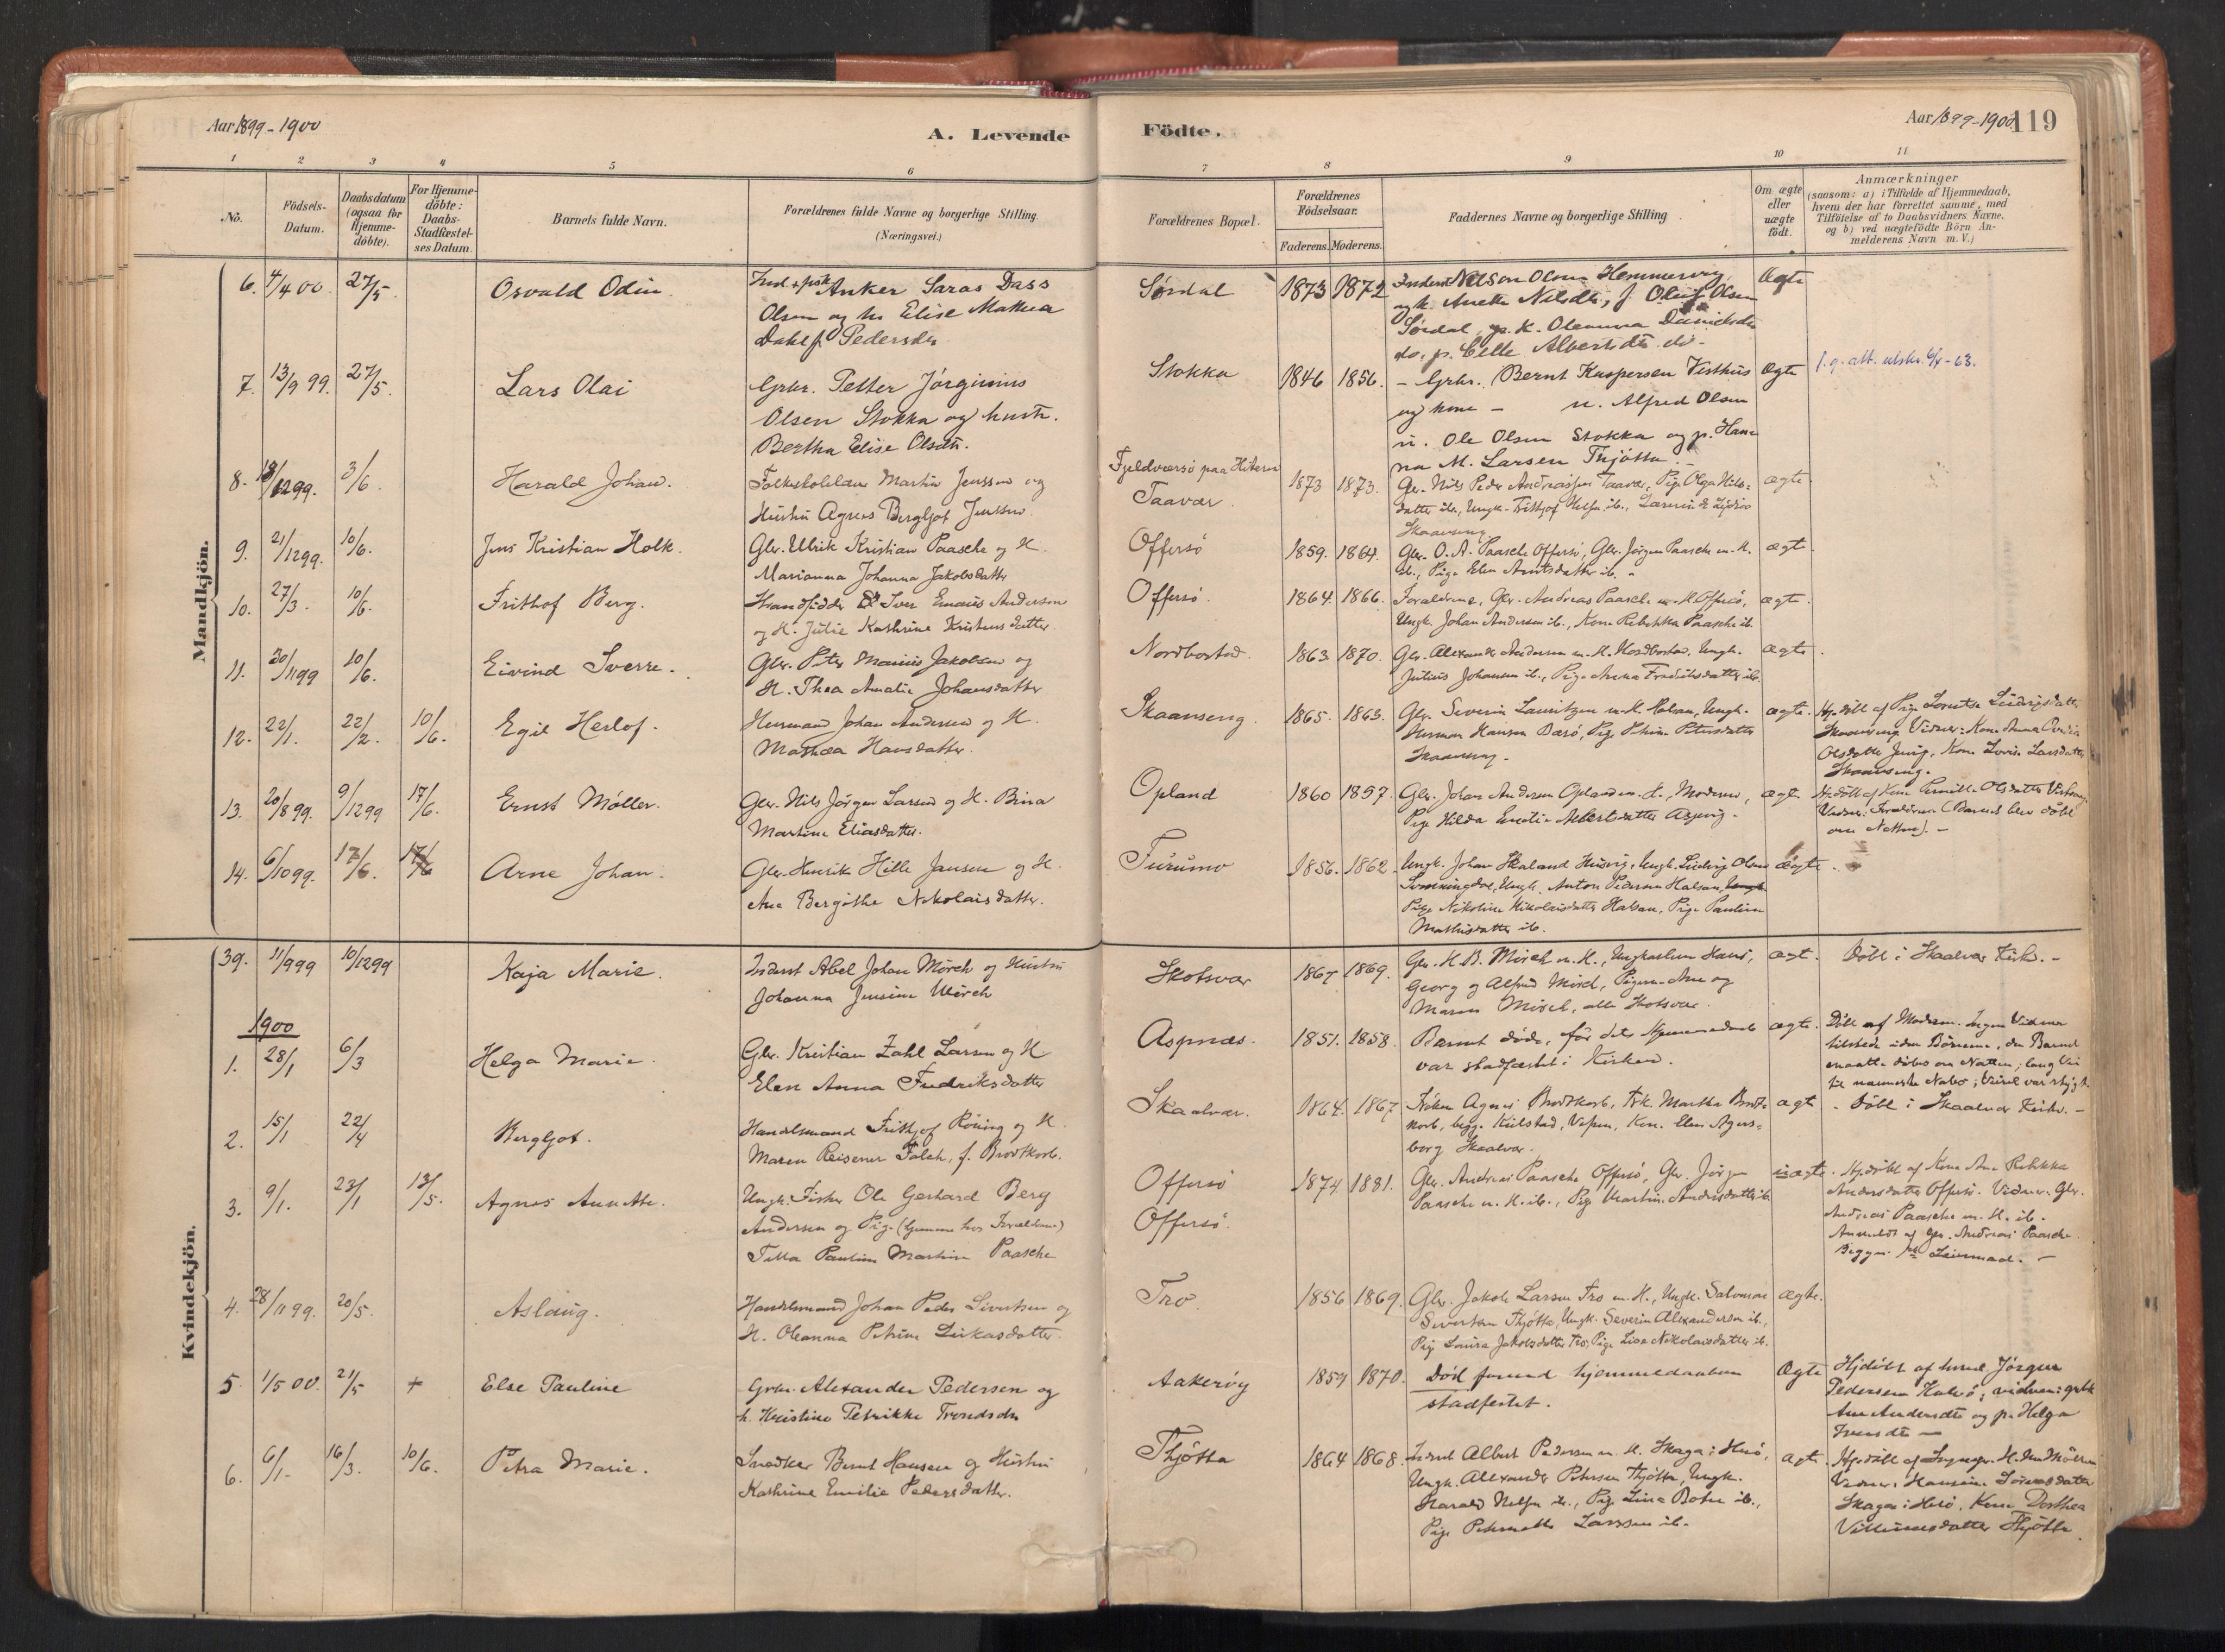 Aar 1899-1900
A. Levende
Födte.
Aar 1899-1900
119
1 2 3 4 5 6 7 8 9 10 11
No.
Födsels-
Datum.
Daabsdatum
(ogsaa for
Hjemme-
döbte).
For Hjemme-
döbte:
Daabs-
Stadfæstel-
ses Datum.
Barnets fulde Navn.
Forældrenes fulde Navne og borgerlige Stilling.
(Næringsvei.)
Forældrenes Bopæl.
Forældrenes
Födselsaar.
Faderens. Moderens.
Faddernes Navne og borgerlige Stilling
Om ægte
eller
uægte
födt.
Anmærkninger
(saasom: a) i Tilfælde af Hjemmedaab,
hvem der har forrettet samme, med
Tilföielse af to Daabsvidners Navne.
og b) ved uægtefödte Börn An-
melderens Navn m. V.)
Mandkjön.
6. 4/4 00 27/5. Osvald Odin Anker Saras Dass
Olsen og h. Elise Mathea
Dahl f. Pedersdtr
Sørdal 1873 1872 Ægte
Sørdal, K. Oleanna
7. 13/9 99. 27/5. Lars Olai Grbr. Petter Jørginius
Olsen Stokka og hustr.
Bertha Elise Olsdtr.
Stokka 1846 1856. - Grbr. Bernt Kaspersen Visthus Ægte
og kone - u. Alfred Olsen
u. Ole Olsen Stokka og p. Han-
na M. Larsen Thjøtta.
8. 18/12 99. 3/6. Harald Johan. Martin Jenssen og
Hustru Agnes Bergljot Jenssen.
Fjeldværsø paa Hiteren
Taavær. 1873 1873. ægte
Skaanseng
9. 21/12 99. 10/6. Jens Kristian Holk. Gbr. Ulrik Kristian Paasche og H.
Marianna Johanna Jakobsdatter
Offersø 1859. 1864. Gbr. O. A. Paasche Offersø, Gbr. Jörgen Paasche m. H. ægte.
ib., Pige Elen Arntsdatter ib.
10. 27/3. 10/6. Frithof Berg. Strandsidder Iver Emaus Andersen
og H. Julie Kathrine Kristensdatter
Offersø. 1864. 1866. Forældrene, Gbr. Andreas Paasche m. H. Offersö, ægte.
Ungk. Johan Andersen ib., Kone Rebekka Paasche ib.
11. 30/11 99 10/6. Eivind Sverre. Gbr. Peter Marius Jakobsen og
H. Thea Amalie Johansdatter
Nordbostad. 1863 1870. Gbr. Alexander Andersen m. H. Nordbostad, Ungk. ægte.
Julius Johansen ib., Pige Anna Fredriksdatter ib.
12. 22/1. 22/2. 10/6. Egil Herlof. Hermand Johan Andersen og H.
Mathea Hansdatter.
Skaanseng 1865. 1863. Gbr. Severin Lauritzen m. H. Halsen, Ungk. ægte.
Herman Hansen Bærö, Pige Petersdatter
Skaanseng.
Hj. döbt af Pige
Skaanseng. Vidner: Kone Anna
Olsdatter Kone Lovise Larsdatter
Skaanseng.
13. 20/8 99. 9/12 99 17/6. Ernst Møller. Gbr. Nils Jörgen Larsen og H. Bina
Martine Eliasdatter.
Opland 1860 1857. Gbr. Johan Andersen Opland m. H., Moderen, ægte.
Pige Hilda Emelie Albertsdatter
Hj. döbt af Kone Pernille Olsdatter
Vidner: Forældrene (Barnet blev döbt
om Natten). -
14. 6/10 99. 17/6. Arne Johan. Gbr. Henrik Hille Jansen og H.
Ane Bergithe Nikolaisdatter.
Furumo 1856. 1862. Ungk. Johan Skaland Ungk. Ludvig Olsen ægte.
Ungk. Anton Pedersen Halsan,
Pige Nikoline Nikolaisdatter Halsan, Pige Pauline
Mathisdatter ib.
Kvindekjön.
39. 11/9 99 10/12 99 Kaja Marie. Inderst Abel Johan Mörch og Hustru
Johanna Jensine Mörch
Skotsvær 1867 1869. Gbr. H. B. Mörch m. H., Ungkarlene Hans, ægt.
Georg og Alfred Mörch, Pigerne Ane og
Maren Mörch, alle Skotsvær.
Döbt i Skaalvær Kirke. -
1900
1. 28/1 6/3 Helga Marie. Gbr. Kristian Zahl Larsen og H.
Elen Anna Fredriksdatter
Aspnæs. 1851. 1858. Barnet døde, för dets Hjemmedaab ægte.
var stadfæstet i Kirken.
Döbt af Moderen. Ingen Vidner
tilstede uden Börnene, da Barnet
maatte döbes om Natten; lang Vei
til nærmeste Nabo; Veiret var stygt.
2. 15/1 22/4 Bergljot. Handelsmand Frithjof Röning og H.
Maren Reisener Falch, f. Brodtkorb.
Skaalvær. 1864. 1867 Fröken Agnes Brodtkorb, Frk. Martha Brodt- ægt.
korb, begge Kone Elen Agers-
borg Skaalvær.
- Döbt i Skaalvær Kirke. -
3. 9/1. 23/1 13/5. Agnes Annette. Ungk. Fisker Ole Gerhard Berg
Andersen og Pige (hjemme hos Forældrene)
Tilla Pauline Martine Paasche
Offersø
Offersø. 1874. 1881. Gbr. Andreas Paasche Offersö, Gbr. Jörgen uægte.
Paasche m. H. ib., Pige Martine Andersdatter ib.
Hj. döbt af Kone Ane Rebekka
Andersdatter Offersö. Vidner: Gbr.
Andreas Paasche m. H. ib.
Anmeldt af Gbr. Andreas Paasche.
Begges 1ste Leiermaal. -
4. 28/11 99. 20/5. Aslaug. Handelsmand Johan Peder Sivertsen og
H. Oleanna Petrine Lukasdatter.
Tro 1856 1869. Gbr. Jakob Larsen Tro m. H., Ungk. Salomon ægte.
Sivertsen Thjøtta, Ungk. Severin Alexandersen ib.,
Pige Laura Jakobsdatter Tro, Pige Lisa Nikolaisdatter ib.
5. 1/5 00. 21/5 + Else Pauline Grbr. Alexander Pedersen og
h. Kristine Petrikke Trondsdtr
Aakerøy 1859 1870. Død forend hjemmedaaben Ægte
stadfestet.
Hjdöbt af Jørgen
Pedersen vidner:
Ane Andersdtr og p. Helga
6. 6/1- 16/3. 10/6. Petra Marie. Snedker Bernt Hansen og Hustru
Kathrine Emilie Pedersdatter.
Thjøtta 1864 1868. Inderst Albert Pedersen m. H. Skaga i Herö, ægte.
Ungk. Alexander Petersen Thjøtta, Ungk.
Harald ib., Pige Lina ib.,
Pige Larssen ib.
Hj. döbt af
Vidner: Hansine
Skaga i Herö. Kone Dorthea
Villumsdatter Thjøtta.